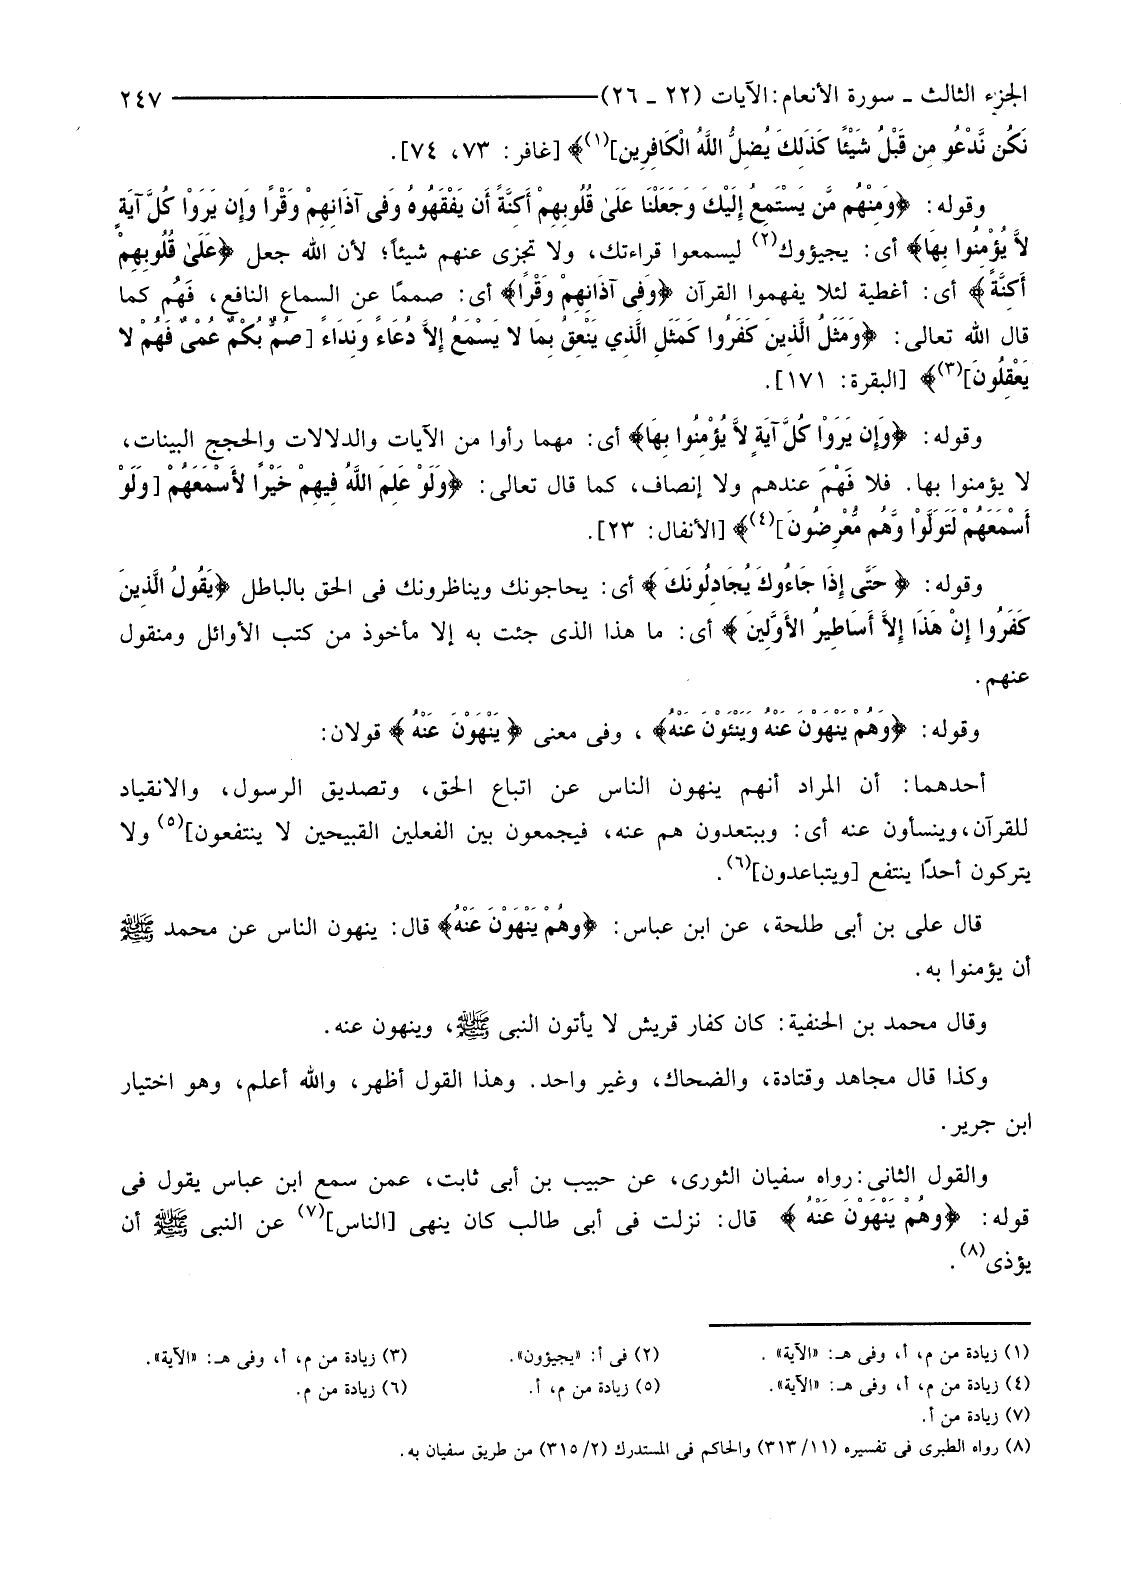 الجزء الثالث ـ سورة الأنعام: الآيات (٢٢ ـ ٢٦) ٢٤٧
نَكُن نَّدْعُو مِن قَبْلُ شَيْئًا كَذَلِكَ يُضِلُّ اللَّهُ الْكَافِرِين](١)﴾ [غافر: ٧٣، ٧٤].
وقوله: ﴿وَمِنْهُم مَّن يَسْتَمِعُ إِلَيْكَ وَجَعَلْنَا عَلَىٰ قُلُوبِهِمْ أَكِنَّةً أَن يَفْقَهُوهُ وَفِى آذَانِهِمْ وَقْرًا وَإِن يَرَوْا كُلَّ آيَةٍ
لاَّ يُؤْمِنُوا بِهَا﴾ أى: يجيؤوك(٢) ليسمعوا قراءتك، ولا تجزى عنهم شيئاً؛ لأن الله جعل ﴿عَلَىٰ قُلُوبِهِمْ
أَكِنَّةً﴾ أى: أغطية لئلا يفهموا القرآن ﴿وَفِى آذَانِهِمْ وَقْرًا﴾ أى: صممًا عن السماع النافع، فَهُم كما
قال الله تعالى: ﴿وَمَثَلُ الَّذِينَ كَفَرُوا كَمَثَلِ الَّذِي يَنْعِقُ بِمَا لا يَسْمَعُ إِلاَّ دُعَاءً وَنِدَاءً [صُمٌّ بُكْمٌ عُمْىٌ فَهُمْ لا
يَعْقِلُونَ](٣)﴾ [البقرة: ١٧١].
وقوله: ﴿وَإِن يَرَوْا كُلَّ آيَةٍ لاَّ يُؤْمِنُوا بِهَا﴾ أى: مهما رأوا من الآيات والدلالات والحجج البينات،
لا يؤمنوا بها. فلا فَهْمَ عندهم ولا إنصاف، كما قال تعالى: ﴿وَلَوْ عَلِمَ اللَّهُ فِيهِمْ خَيْرًا لأَسْمَعَهُمْ [وَلَوْ
أَسْمَعَهُمْ لَتَوَلَّوْا وَّهُم مُّعْرِضُونَ](٤)﴾ [الأنفال: ٢٣].
وقوله: ﴿ حَتَّى إِذَا جَاءُوكَ يُجَادِلُونَكَ ﴾ أى: يحاجونك ويناظرونك فى الحق بالباطل ﴿يَقُولُ الَّذِينَ
كَفَرُوا إِنْ هَذَا إِلاَّ أَسَاطِيرُ الأَوَّلِينَ ﴾ أى: ما هذا الذى جئت به إلا مأخوذ من كتب الأوائل ومنقول
عنهم.
وقوله: ﴿وَهُمْ يَنْهَوْنَ عَنْهُ وَيَنْئَوْنَ عَنْهُ﴾ ، وفى معنى ﴿ يَنْهَوْنَ عَنْهُ ﴾ قولان:
أحدهما: أن المراد أنهم ينهون الناس عن اتباع الحق، وتصديق الرسول، والانقياد
للقرآن،وينسأون عنه أى: وببتعدون هم عنه، فيجمعون بين الفعلين القبيحين لا ينتفعون](٥) ولا
يتركون أحدًا ينتفع [ويتباعدون](٦).
قال على بن أبى طلحة، عن ابن عباس: ﴿وهُمْ يَنْهَوْنَ عَنْهُ﴾ قال: ينهون الناس عن محمد ﷺ
أن يؤمنوا به.
وقال محمد بن الحنفية: كان كفار قريش لا يأتون النبى ﷺ، وينهون عنه.
وكذا قال مجاهد وقتادة، والضحاك، وغير واحد. وهذا القول أظهر، والله أعلم، وهو اختيار
ابن جرير.
والقول الثانى: رواه سفيان الثورى، عن حبيب بن أبى ثابت، عمن سمع ابن عباس يقول فى
قوله: ﴿وهُمْ يَنْهَوْنَ عَنْهُ ﴾ قال: نزلت فى أبى طالب كان ينهى [الناس](٧) عن النبى ﷺ أن
يؤذى(٨).
(١) زيادة من م، أ، وفى هـ: «الآية» . (٢) فى أ: «يجيؤون». (٣) زيادة من م، أ، وفى هـ: «الآية».
(٤) زيادة من م، أ، وفى هـ: «الآية». (٥) زيادة من م، أ. (٦) زيادة من م.
(٧) زيادة من أ.
(٨) رواه الطبرى فى تفسيره (٣١٣/١١) والحاكم فى المستدرك (٣١٥/٢) من طريق سفيان به.